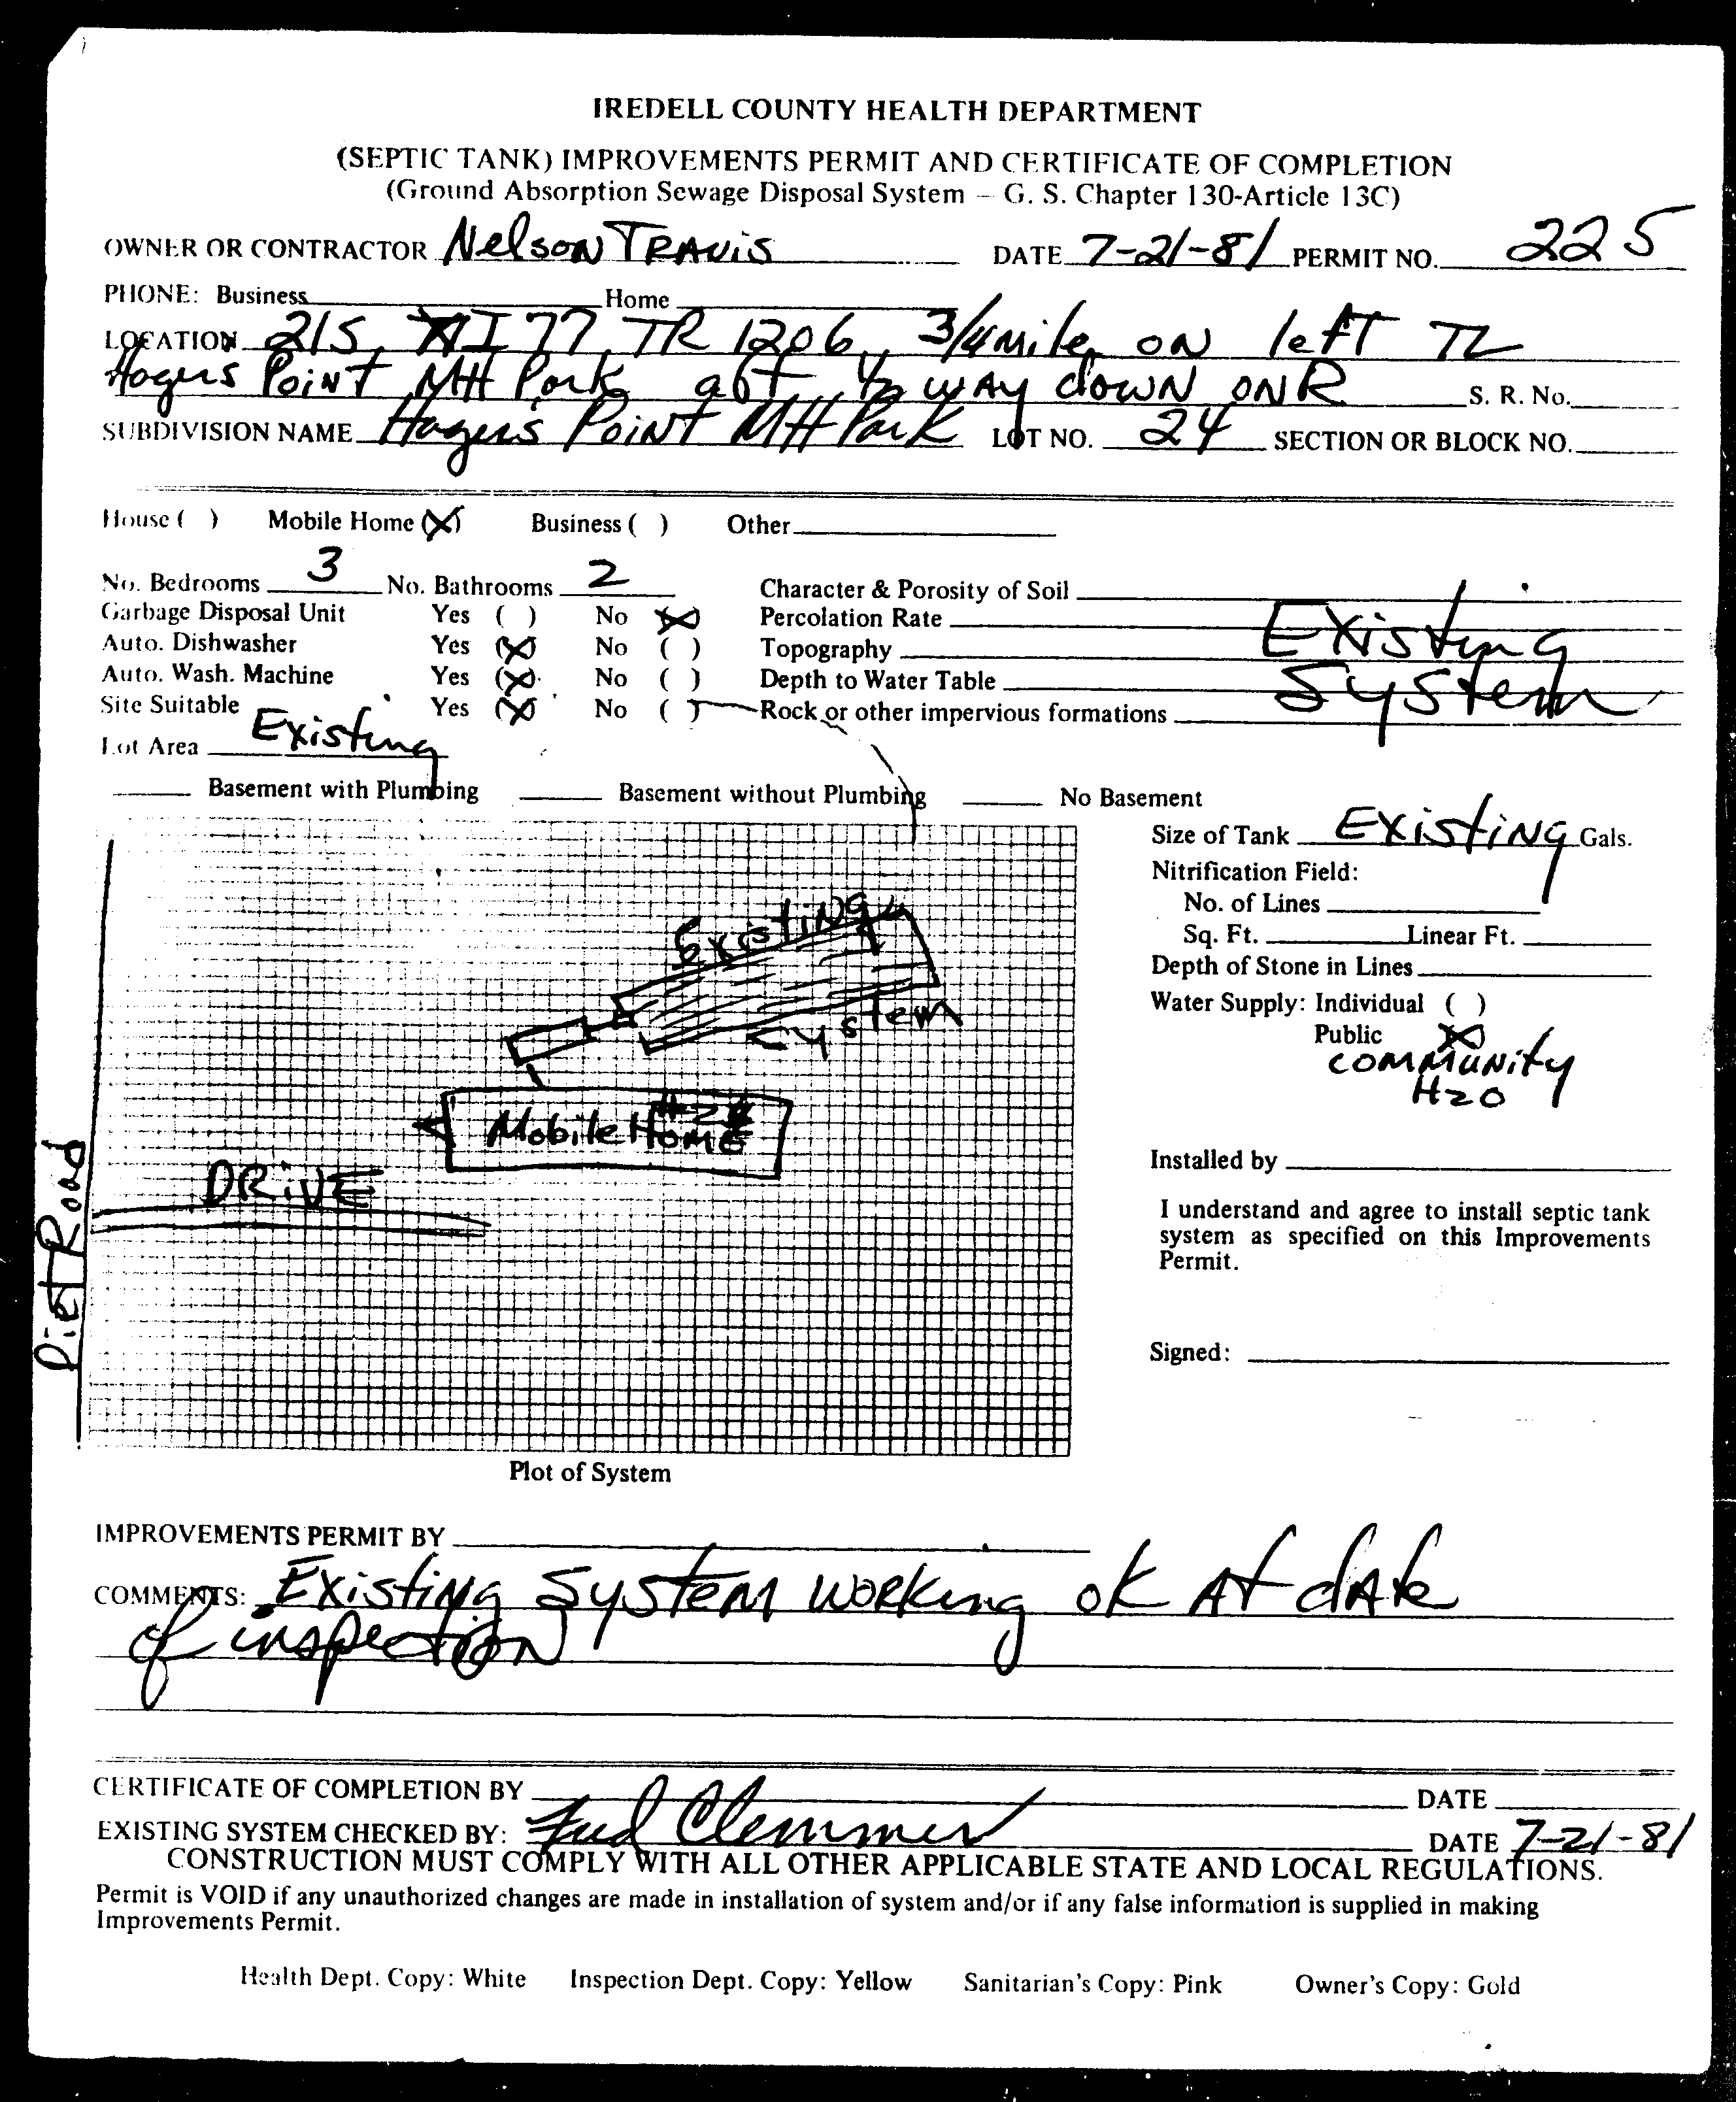 IREDELL COUNTY HEALTH DEPARTMENT
(SEPTIC TANK) IMPROVEMENTS PERMIT AND CERTIFICATE OF COMPLETION
(Ground Absorption Sewage Disposal System – G. S. Chapter 130-Article 13C)
OWNER OR CONTRACTOR Nelson TRAVIS DATE 7-21-81 PERMIT NO. 225
PHONE: Business Home
LOCATION 21S I 77 TR 1206 3/4 mile on left TL
Hagers Point MH Park abt 1/2 way down on R S. R. No.
SUBDIVISION NAME Hagers Point MH Park LOT NO. 24 SECTION OR BLOCK NO.
House ( ) Mobile Home (X) Business ( ) Other
No. Bedrooms 3 No. Bathrooms 2 Character & Porosity of Soil
Garbage Disposal Unit Yes ( ) No (X) Percolation Rate Existing
Auto. Dishwasher Yes (X) No ( ) Topography
Auto. Wash. Machine Yes (X) No ( ) Depth to Water Table System
Site Suitable Yes (X) No ( ) Rock or other impervious formations
Lot Area Existing
Basement with Plumbing Basement without Plumbing No Basement
Size of Tank Existing Gals.
Nitrification Field:
No. of Lines
Sq. Ft. Linear Ft.
Depth of Stone in Lines
Water Supply: Individual ( )
Public (X)
COMMUNITY
H2O
Existing
System
Mobile Home
DRIVE
Dirt Road
Installed by
I understand and agree to install septic tank
system as specified on this Improvements
Permit.
Signed:
Plot of System
IMPROVEMENTS PERMIT BY
COMMENTS: Existing System working ok At date
of inspection
CERTIFICATE OF COMPLETION BY DATE
EXISTING SYSTEM CHECKED BY: Fred Clemmer DATE 7-21-81
CONSTRUCTION MUST COMPLY WITH ALL OTHER APPLICABLE STATE AND LOCAL REGULATIONS.
Permit is VOID if any unauthorized changes are made in installation of system and/or if any false information is supplied in making
Improvements Permit.
Health Dept. Copy: White Inspection Dept. Copy: Yellow Sanitarian's Copy: Pink Owner's Copy: Gold